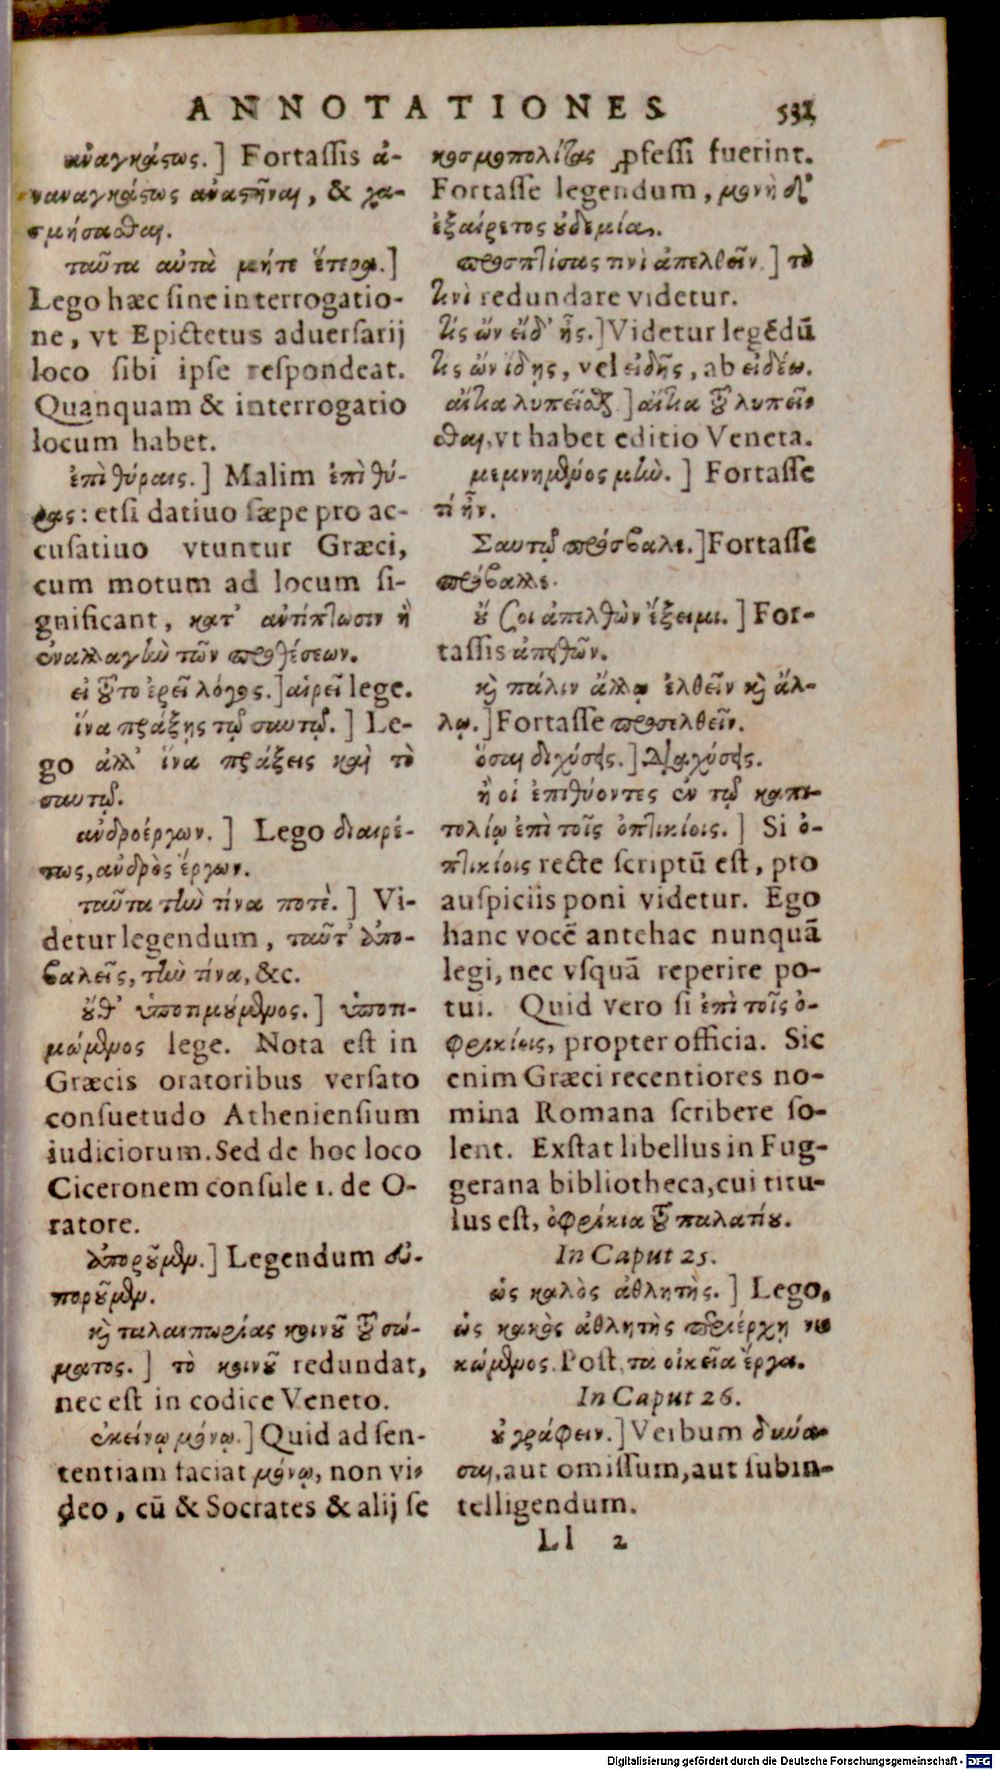 ANNOTATIONES 531
ἀναγκάστως.] Fortassis ἀ-
ναναγκάστως ἀναστῆναι, & χα-
σμήσασθαι.
ταῦτα αὐτὰ μήτε ἕτερα.]
Lego hæc sine interrogatio-
ne, vt Epictetus aduersarij
loco sibi ipse respondeat.
Quanquam & interrogatio
locum habet.
ἐπὶ θύραις.] Malim ἐπὶ θύ-
ρας: etsi datiuo sæpe pro ac-
cusatiuo vtuntur Græci,
cum motum ad locum si-
gnificant, κατ' ἀντίπτωσιν ἢ
ἐναλλαγὴν τῶν προθέσεων.
εἰ τοῦτο ἐρεῖ λόγος.] αἱρεῖ lege.
ἵνα πράξῃς τῷ σαυτῷ.] Le-
go ἀλλ' ἵνα πράξεις καὶ τὸ
σαυτῷ.
ἀνδροέργων.] Lego διαιρέ-
τως, ἀνδρὸς ἔργων.
ταῦτα τὴν τίνα ποτὲ.] Vi-
detur legendum, ταῦτ' ἀπο-
βαλεῖς, τὴν τίνα, &c.
οὔθ' ὑποτιμούμενος.] ὑποτι-
μώμενος lege. Nota est in
Græcis oratoribus versato
consuetudo Atheniensium
iudiciorum. Sed de hoc loco
Ciceronem consule 1. de O-
ratore.
ἀποροῦμεν.] Legendum εὐ-
ποροῦμεν.
καὶ ταλαιπωρίας κοινοῦ τοῦ σώ-
ματος.] τὸ κοινοῦ redundat,
nec est in codice Veneto.
ἐκείνῳ μόνῳ.] Quid ad sen-
tentiam faciat μόνῳ, non vi-
deo, cū & Socrates & alij se
κοσμοπολίτας ꝓfessi fuerint.
Fortasse legendum, μονὴ δ'
ἐξαίρετος οὐδεμία.
προσπτίσας τινὶ ἀπελθεῖν.] τὸ
τινὶ redundare videtur.
τίς ὢν εἶδ' ἧς.] Videtur legēdū
τίς ὢν ἴδῃς, vel εἰδῇς, ab εἰδέω.
αἴτια λυπεῖσθαι.] αἴτια τοῦ λυπεῖ-
σθαι, vt habet editio Veneta.
μεμνημένος μὲν.] Fortasse
τί ἦν.
Σαυτῷ πρόσβαλε.] Fortasse
πρόβαλλε.
οὔ σοι ἀπελθὼν ἕξειμι.] For-
tassis ἀπελθεῖν.
καὶ πάλιν ἄλλῳ ἐλθεῖν καὶ ἄλ-
λῳ.] Fortasse προσελθεῖν.
ὅσαι διχύσεις.] Διαχύσεις.
ἢ οἱ ἐπιθύοντες ἐν τῷ καπι-
τολίῳ ἐπὶ τοῖς ὀπτικίοις.] Si ὀ-
πτικίοις recte scriptū est, pro
auspiciis poni videtur. Ego
hanc vocē antehac nunquā
legi, nec vsquā reperire po-
tui. Quid vero si ἐπὶ τοῖς ὀ-
φφικίοις, propter officia. Sic
enim Græci recentiores no-
mina Romana scribere so-
lent. Exstat libellus in Fug-
gerana bibliotheca, cui titu-
lus est, ὀφφίκια τοῦ παλατίου.
In Caput 25.
ὡς καλὸς ἀθλητὴς.] Lego,
ὡς κακὸς ἀθλητὴς περιέρχῃ νι-
κώμενος. Post, τὰ οἰκεῖα ἔργα.
In Caput 26.
οὐ γράφειν.] Verbum δύνα-
σαι, aut omissum, aut subin-
telligendum.
Ll 2
Digitalisierung gefördert durch die Deutsche Forschungsgemeinschaft - DFG